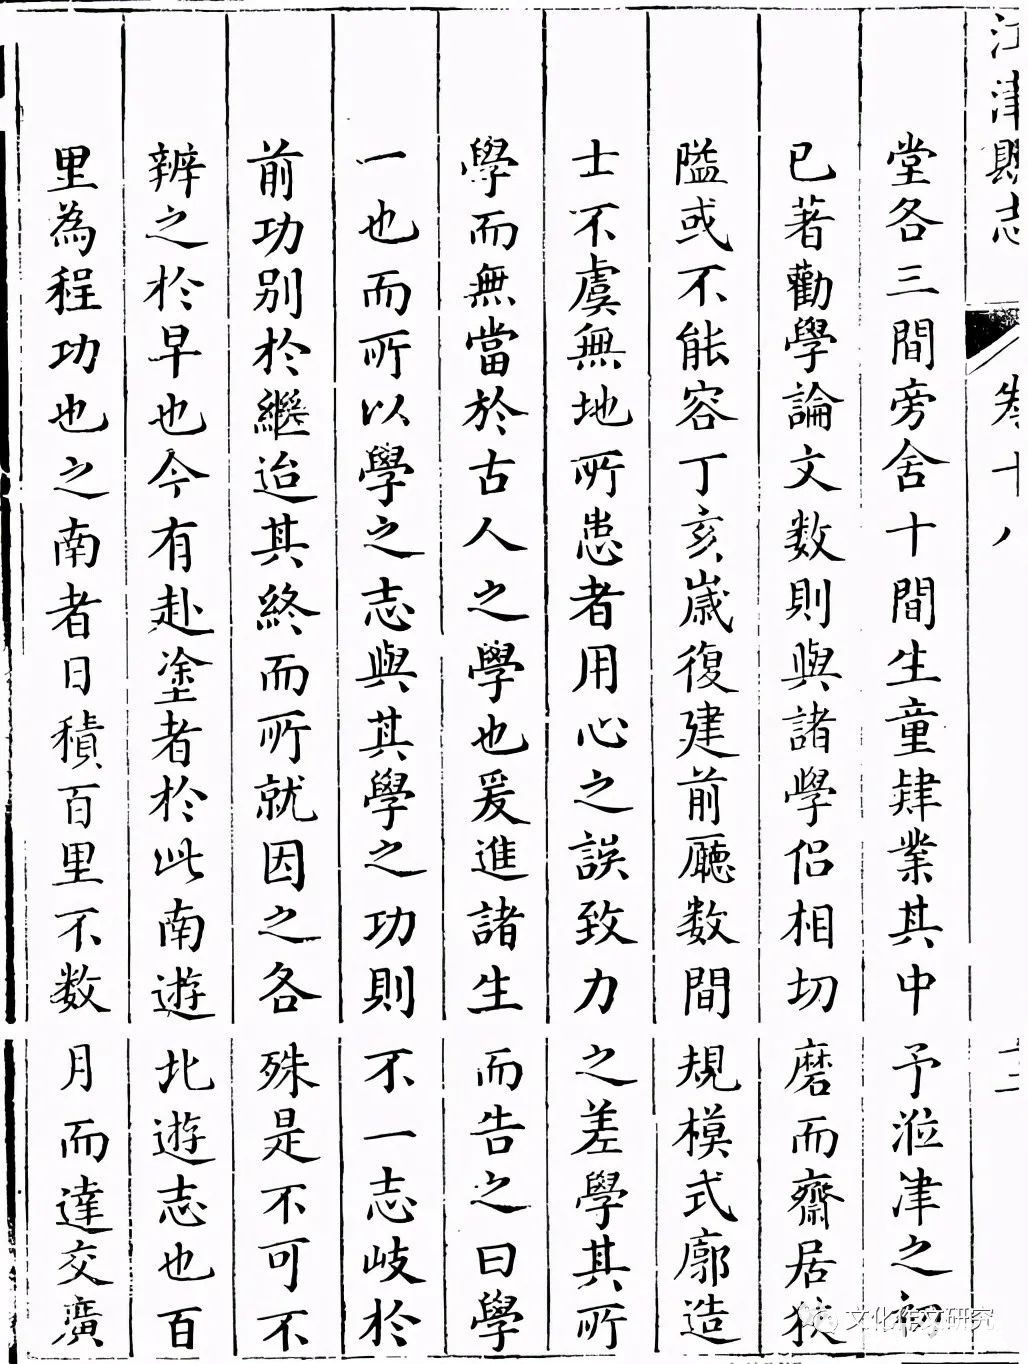 江津縣志
卷十八
十二
堂各三間旁舍十間生童肄業其中予涖津之初
已著勸學論文数則與諸學侣相切磨而齋居狹
隘或不能容丁亥歲復建前廳数間規模式廓造
士不虞無地所患者用心之誤致力之差學其所
學而無當於古人之學也爰進諸生而告之曰學
一也而所以學之志與其學之功則不一志岐於
前功别於繼迨其終而所就因之各殊是不可不
辨之於早也今有赴塗者於此南遊北遊志也百
里為程功也之南者日積百里不数月而達交廣
文化作文研究